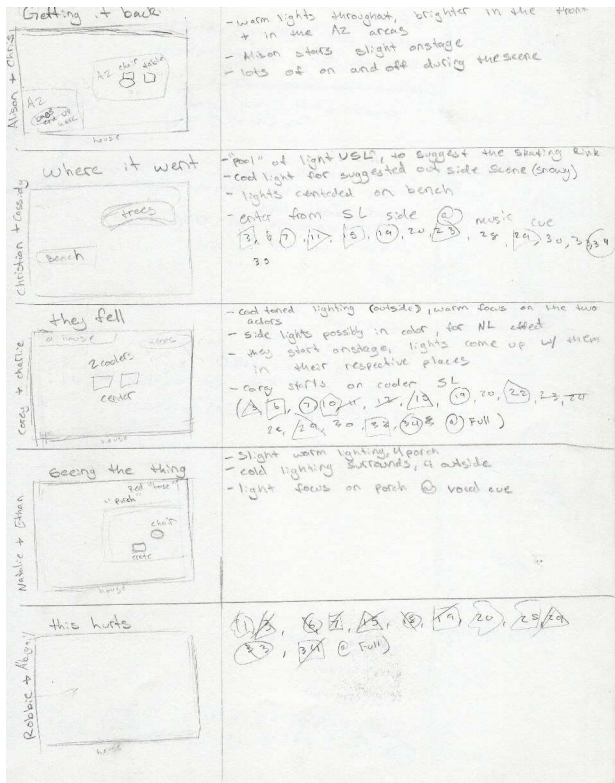 Getting it back
Alison + Chris
A2 chair table
A2
house
- warm lights throughout, brighter in the front
+ in the A2 areas
- Alison stars slight onstage
- lots of on and off during the scene
where it went
Christian + Cassidy
trees
Bench
- "pool" of light USL, to suggest the skating Rink
- cool light for suggested out side scene (snowy)
- lights centeded on bench
- enter from SL side @ music cue
3, 6, 7, 11, 15, 19, 20, 23, 28, 29, 30, 33, 34
they fell
corey + charlie
a house
trees
2 coolers
center
house
- cool toned lighting (outside), warm focus on the two
actors
- side lights possibly in color, for NL effect
- they start onstage, lights come up w/ them
in their respective places
- corey starts on cooler SL
@ Full)
Seeing the thing
Natalie + Ethan
"porch"
chair
crate
house
- Slight warm lighting, 4 porch
- cold lighting surrounds, 4 outside
- light focus on porch @ vocal cue
this hurts
Robbie + Abigail
house
@ Full)